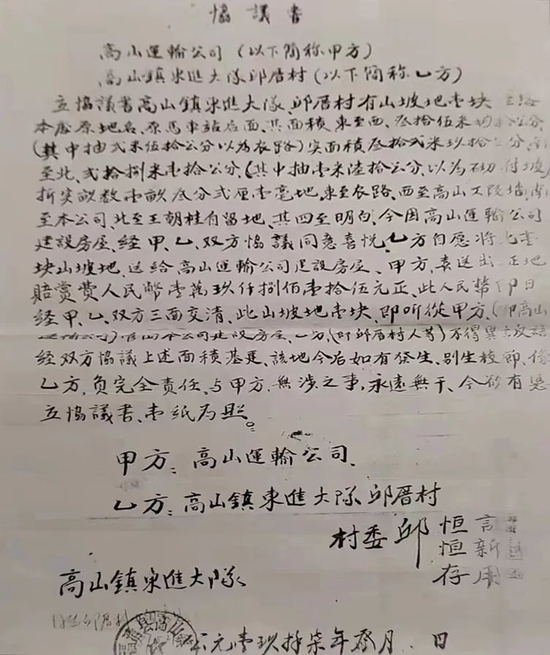 協議書
高山運輸公司(以下简称甲方)
高山鎮東進大隊邱厝村(以下简称乙方)
立協議書高山鎮東進大隊、邱厝村有山坡地壹块
本店原地名、原馬車站后面、其面積東至西、叁拾伍米
(其中抽弍米伍拾公分以為长路)实面積叁拾弍米玖拾公分、南
至北、弍拾捌米壹拾公分(其中抽壹米陸拾公分以為砌付坡)
折实畝数壹畝、叁分弍厘壹毫地、東至长路、西至高山工段墙、南
至本公司、北至王朝桂自留地、其四至明白、今因高山運輸公司
建設房屋、经甲、乙、双方協議同意喜悦、乙方自愿將此壹
块山坡地、送給高山運輸公司建設房屋、甲方、卖送出
賠赏费人民幣壹萬玖仟捌佰壹拾伍元正、此人民幣即日
经甲、乙、双方三面交清、此山坡地壹块、即听從甲方、(即高山
運輸公司)
经双方協議上述面積基建、該地今后如有發生、别生枝節、係
乙方、負完全責任、与甲方、無涉之事、永遠無干、今欲有憑
立協議書、壹紙為照。
甲方:高山運輸公司、
乙方:高山鎮東進大隊邱厝村
村委 邱
恒
恒新
存
高山鎮東進大隊
元壹玖捌柒年 月 日